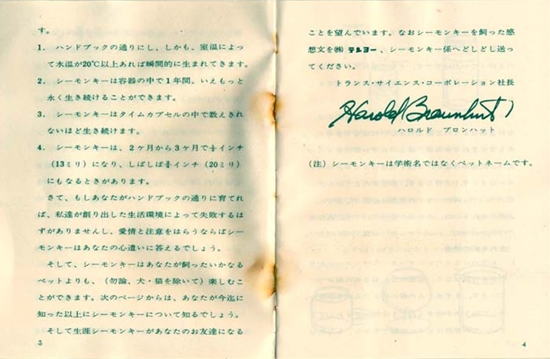 す。
1. ハンドブックの通りにし、しかも、室温によっ
て水温が20℃以上あれば瞬間的に生まれてきます。
2. シーモンキーは容器の中で1年間、いえもっと
永く生き続けることができます。
3. シーモンキーはタイムカプセルの中で数えきれ
ないほど生き続けます。
4. シーモンキーは、2ケ月から3ケ月で½インチ
(13ミリ)になり、しばしば¾インチ(20ミリ)
にもなるときがあります。
さて、もしあなたがハンドブックの通りに育てれ
ば、私達が創り出した生活環境によって失敗するは
ずがありませんし、愛情と注意をはらうならばシー
モンキーはあなたの心遣いに答えるでしょう。
そして、シーモンキーはあなたが飼ったいかなる
ペットよりも、(勿論、犬・猫を除いて)楽しむこ
とができます。次のページからは、あなたが今迄に
知った以上にシーモンキーについて知るでしょう。
そして生涯シーモンキーがあなたのお友達になる
3
ことを望んでいます。なおシーモンキーを飼った感
想文を㈱テンヨー、シーモンキー係へどしどし送っ
てください。
トランス・サイエンス・コーポレーション社長
Harold Braunhut
ハロルド ブロンハット
(注)シーモンキーは学術名ではなくペットネームです。
4